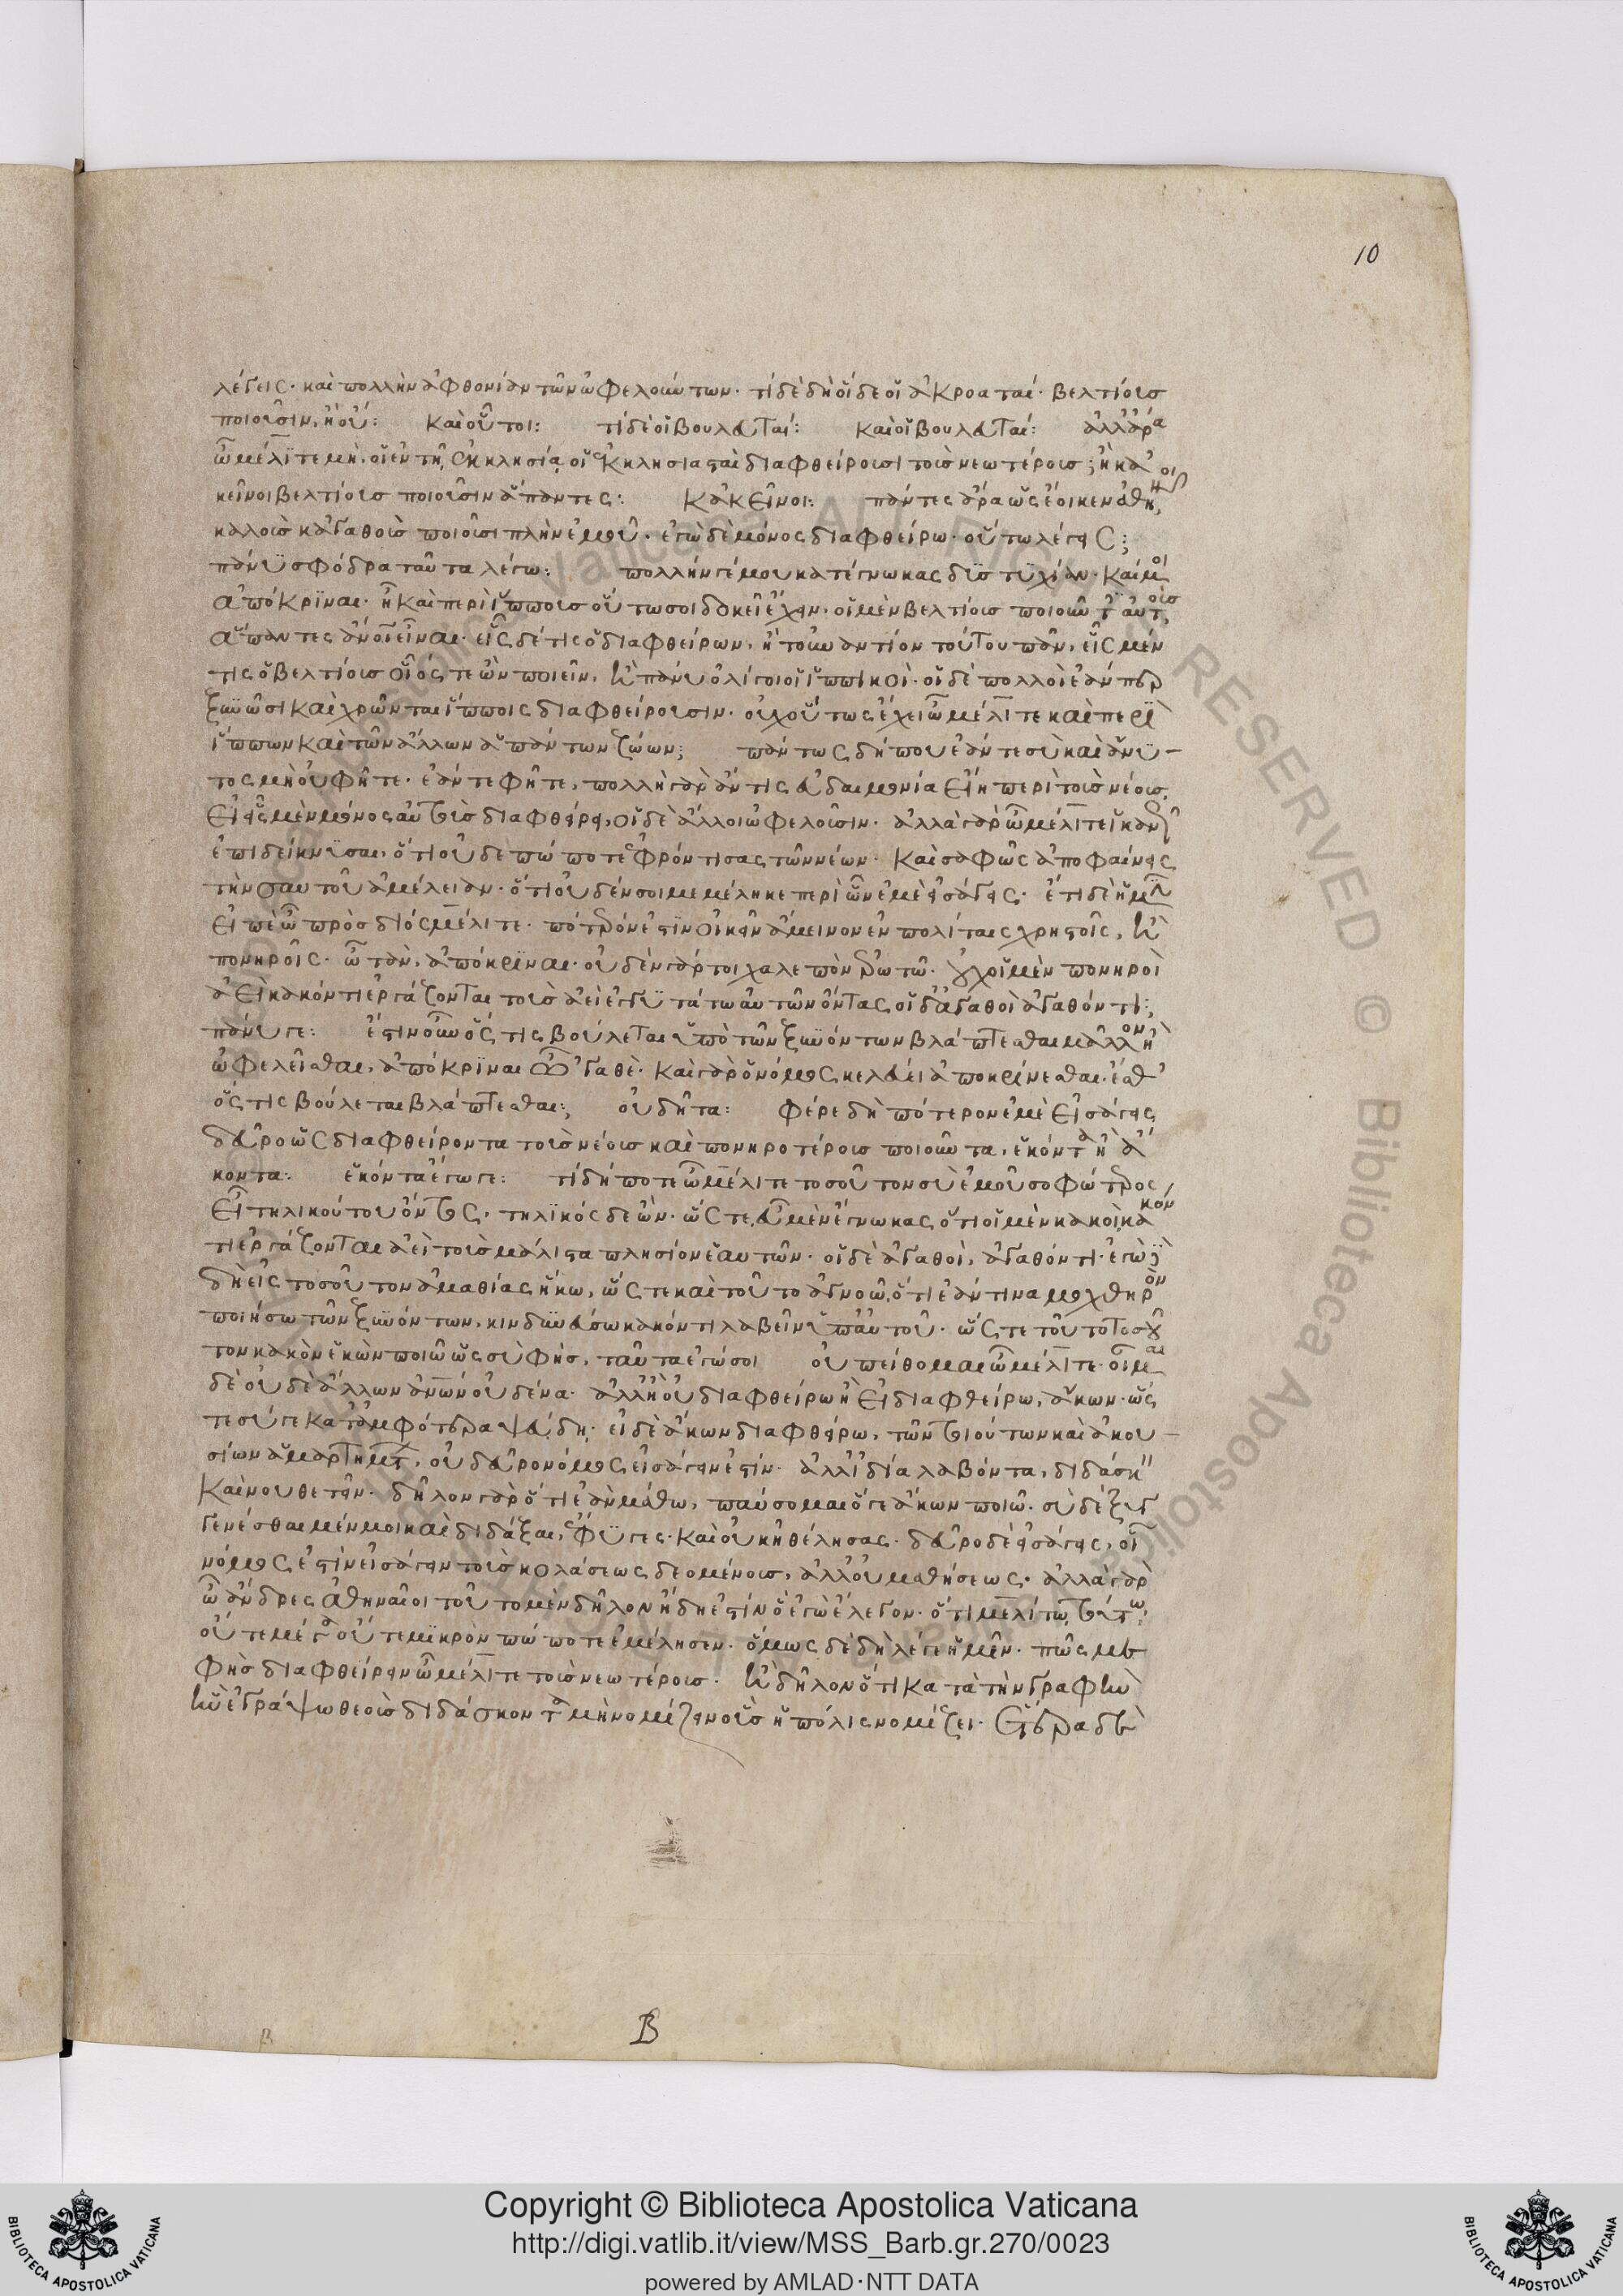 10
λέγεις· καὶ πολλὴν ἀφθονίαν τῶν ὠφελούντων· τί δὲ δὴ οἵδε οἱ ἀκροαταί· βελτίους
ποιοῦσιν, ἢ οὔ: καὶ οὗτοι: τί δὲ οἱ βουλευταί: καὶ οἱ βουλευταί: ἀλλ' ἄρα
ὦ μέλιτε μὴ οἱ ἐν τῇ ἐκκλησίᾳ οἱ ἐκκλησιασταὶ διαφθείρουσι τοὺς νεωτέρους; ἢ κἀ
κεῖνοι βελτίους ποιοῦσιν ἅπαντες: κἀκεῖνοι: πάντες ἄρα ὡς ἔοικεν ἀθηναῖοι
καλοὺς κἀγαθοὺς ποιοῦσι πλὴν ἐμοῦ· ἐγὼ δὲ μόνος διαφθείρω· οὕτω λέγεις;
πάνυ σφόδρα ταῦτα λέγω: πολλήν γέ μου κατέγνωκας δυστυχίαν· καί μοι
ἀπόκριναι· ἦ καὶ περὶ ἵππους οὕτω σοι δοκεῖ ἔχειν· οἱ μὲν βελτίους ποιοῦντες αὐτοὺς
ἅπαντες ἄνθρωποι εἶναι· εἷς δέ τις ὁ διαφθείρων, ἢ τοὐναντίον τούτου πᾶν, εἷς μέν
τις ὁ βελτίους οἷός τε ὢν ποιεῖν, ἢ πάνυ ὀλίγοι οἱ ἱππικοί· οἱ δὲ πολλοὶ ἐάνπερ
ξυνῶσι καὶ χρῶνται ἵπποις διαφθείρουσιν· οὐχ οὕτως ἔχει ὦ μέλιτε καὶ περὶ
ἵππων καὶ τῶν ἄλλων ἁπάντων ζώων; πάντως δήπου ἐάν τε σὺ καὶ ἄνυ-
τος μὴ οὐ φῆτε· ἐάν τε φῆτε, πολλὴ γὰρ ἄν τις εὐδαιμονία εἴη περὶ τοὺς νέους,
εἰ εἷς μὲν μόνος αὐτοὺς διαφθείρει, οἱ δὲ ἄλλοι ὠφελοῦσιν· ἀλλὰ γὰρ ὦ μέλιτε ἱκανῶς
ἐπιδείκνυσαι, ὅτι οὐδεπώποτε ἐφρόντισας τῶν νέων· καὶ σαφῶς ἀποφαίνεις
τὴν σαυτοῦ ἀμέλειαν· ὅτι οὐδέν σοι μεμέληκε περὶ ὧν ἐμὲ εἰσάγεις· ἔτι δὲ ἡμῖν
εἰπὲ ὦ πρὸς διός μέλιτε· πότερόν ἐστιν οἰκεῖν ἄμεινον ἐν πολίταις χρηστοῖς, ἢ
πονηροῖς· ὦ τάν, ἀπόκριναι· οὐδὲν γάρ τοι χαλεπὸν ἐρωτῶ· οὐχ οἱ μὲν πονηροὶ
ἀεὶ κακόν τι ἐργάζονται τοὺς ἀεὶ ἐγγυτάτω αὐτῶν ὄντας οἱ δ' ἀγαθοὶ ἀγαθόν τι;
πάνυ γε: ἔστιν οὖν ὅστις βούλεται ὑπὸ τῶν ξυνόντων βλάπτεσθαι μᾶλλον ἢ
ὠφελεῖσθαι, ἀπόκριναι ὦ 'γαθέ· καὶ γὰρ ὁ νόμος κελεύει ἀποκρίνεσθαι· ἔσθ'
ὅστις βούλεται βλάπτεσθαι; οὐ δῆτα: φέρε δὴ πότερον ἐμὲ εἰσάγεις
δεῦρο ὡς διαφθείροντα τοὺς νέους καὶ πονηροτέρους ποιοῦντα, ἑκόντα ἢ ἄ
κοντα: ἑκόντα ἔγωγε: τί δήποτε ὦ μέλιτε τοσοῦτον σὺ ἐμοῦ σοφώτερος
εἶ τηλικούτου ὄντος, τηλικόσδε ὤν· ὥστε σὺ μὲν ἔγνωκας ὅτι οἱ μὲν κακοὶ κακόν
τι ἐργάζονται ἀεὶ τοὺς μάλιστα πλησίον ἑαυτῶν· οἱ δὲ ἀγαθοὶ, ἀγαθόν τι· ἐγὼ δὲ
δὴ εἰς τοσοῦτον ἀμαθίας ἥκω, ὥστε καὶ τοῦτο ἀγνοῶ, ὅτι ἐάν τινα μοχθηρὸν
ποιήσω τῶν ξυνόντων, κινδυνεύσω κακόν τι λαβεῖν ὑπ' αὐτοῦ· ὥστε τοῦτο τοσοῦ
τον κακὸν ἑκὼν ποιῶ ὡς σὺ φής, ταῦτα ἐγώ σοι οὐ πείθομαι ὦ μέλιτε· οἶμαι
δὲ οὐδὲ ἄλλων ἀνθρώπων οὐδένα· ἀλλ' ἢ οὐ διαφθείρω ἢ εἰ διαφθείρω, ἄκων· ὥς
τε σύ γε κατ' ἀμφότερα ψεύδῃ· εἰ δὲ ἄκων διαφθείρω, τῶν τοιούτων καὶ ἀκου-
σίων ἁμαρτημάτων, οὐ δεῦρο νόμος εἰσάγειν ἐστίν· ἀλλ' ἰδίᾳ λαβόντα, διδάσκειν
καὶ νουθετεῖν· δῆλον γὰρ ὅτι ἐὰν μάθω, παύσομαι ὅ γε ἄκων ποιῶ· σὺ δὲ ξυγ
γενέσθαι μέν μοι καὶ διδάξαι, ἔφυγες· καὶ οὐκ ἠθέλησας· δεῦρο δὲ εἰσάγεις, οἷ
νόμος ἐστὶν εἰσάγειν τοὺς κολάσεως δεομένους, ἀλλ' οὐ μαθήσεως· ἀλλὰ γὰρ
ὦ ἄνδρες ἀθηναῖοι τοῦτο μὲν δῆλον ἤδη ἐστὶν ὃ ἐγὼ ἔλεγον· ὅτι μελίτῳ τούτων
οὔτε μέγα οὔτε μικρὸν πώποτε ἐμέλησεν· ὅμως δὲ δὴ λέγε ἡμῖν· πῶς με
φῂς διαφθείρειν ὦ μέλιτε τοὺς νεωτέρους· ἢ δῆλον ὅτι κατὰ τὴν γραφὴν
ἣν ἐγράψω θεοὺς διδάσκοντα μὴ νομίζειν οὓς ἡ πόλις νομίζει· ἕτερα δὲ
B
Copyright © Biblioteca Apostolica Vaticana
http://digi.vatlib.it/view/MSS_Barb.gr.270/0023
powered by AMLAD·NTT DATA
BIBLIOTECA APOSTOLICA VATICANA
BIBLIOTECA APOSTOLICA VATICANA